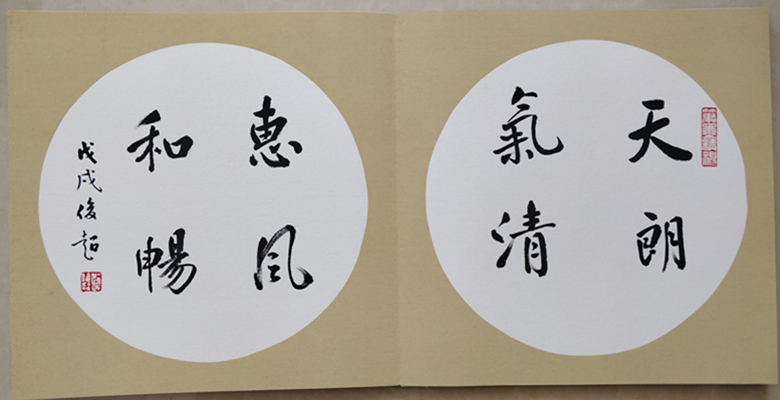 天朗
氣清
惠风
和暢
戊戌俊超